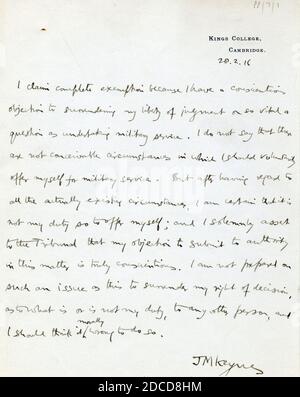 KINGS COLLEGE,
CAMBRIDGE.
28.2.16
I claim complete exemption because I have a conscientious
objection to surrendering my liberty of judgment on so vital a
question as undertaking military service. I do not say that there
are not conceivable circumstances in which I should voluntarily
offer myself for military service. But after having regard to
all the actually existing circumstances, I am certain that it is
not my duty so to offer myself; and I solemnly assert
to the Tribunal that my objection to submit to authority
in this matter is truly conscientious. I am not prepared on
such an issue as this to surrender my right of decision,
as to what is or is not my duty, to any other person, and
I should think it morally wrong to do so.
JM Keynes
alamy
Image ID: 2DCD8HM
www.alamy.com